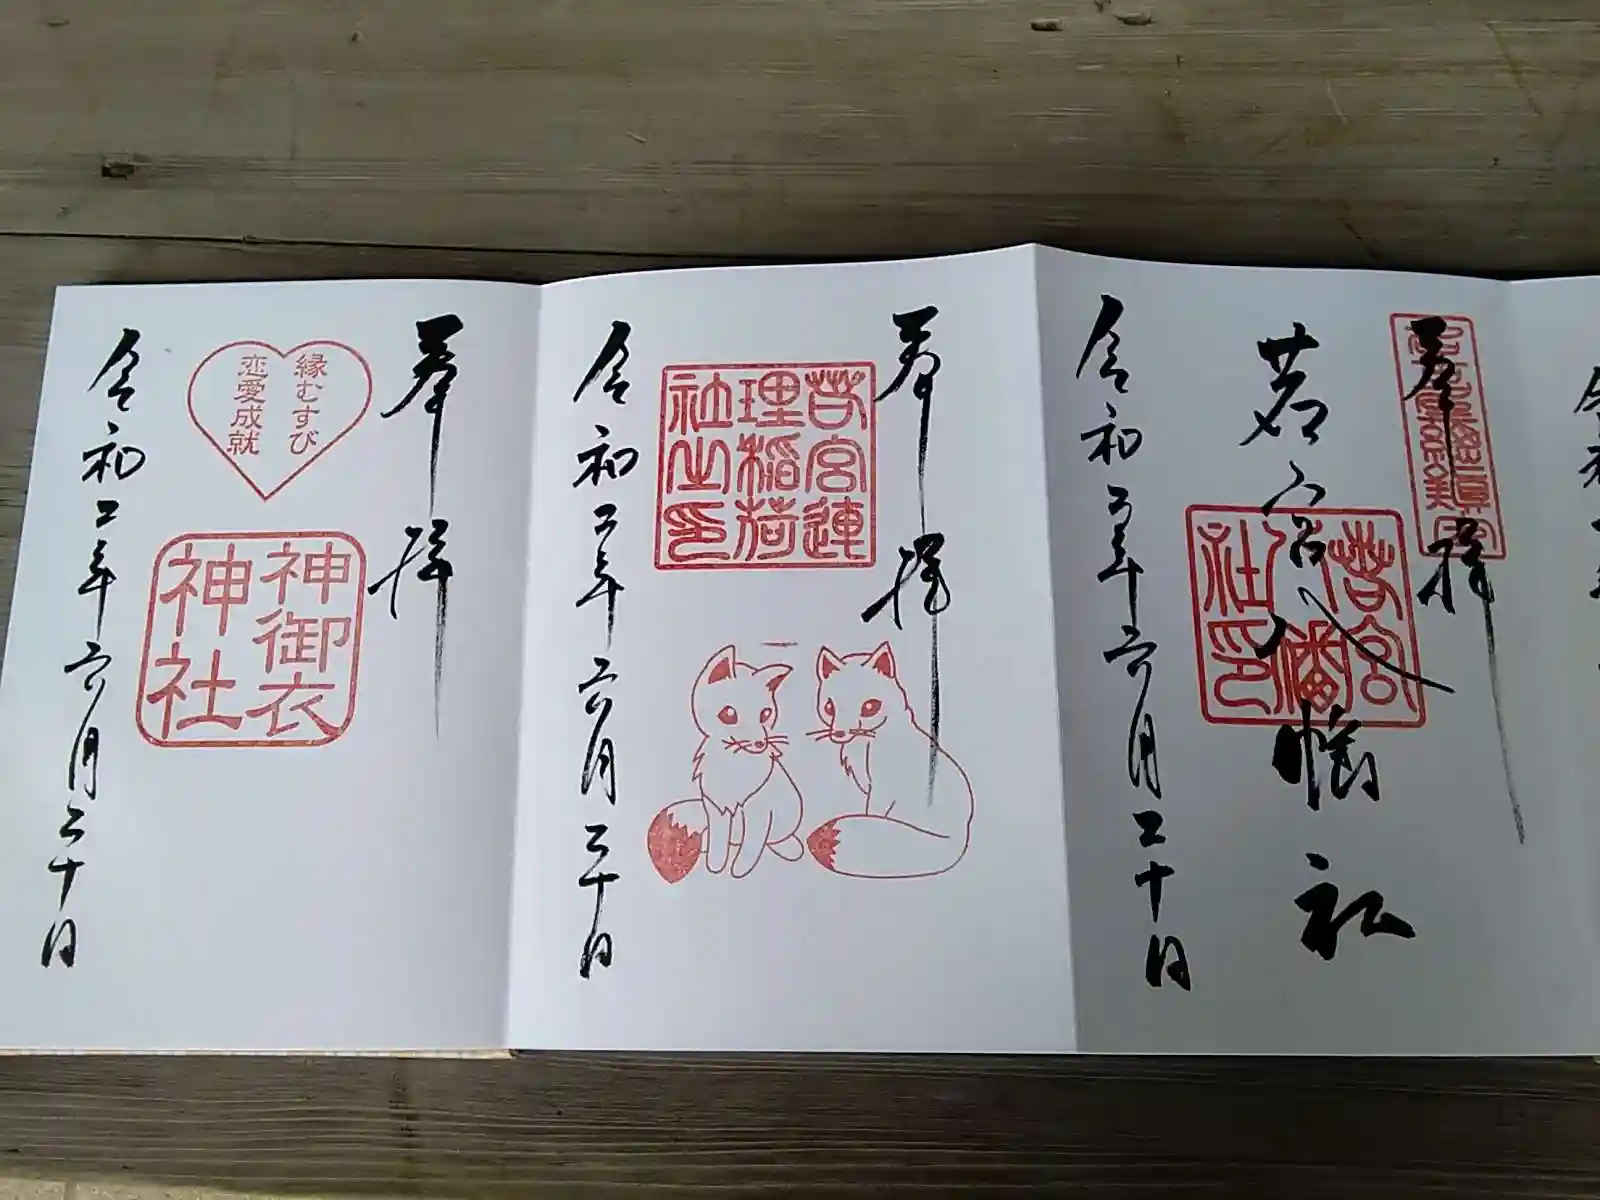 奉拝
若宮八幡社
若宮八幡社印
令和二年六月二十日
奉拝
若宮運
理稲荷
社之印
令和二年六月二十日
奉拝
縁むすび
恋愛成就
神御衣
神社
令和二年六月二十日